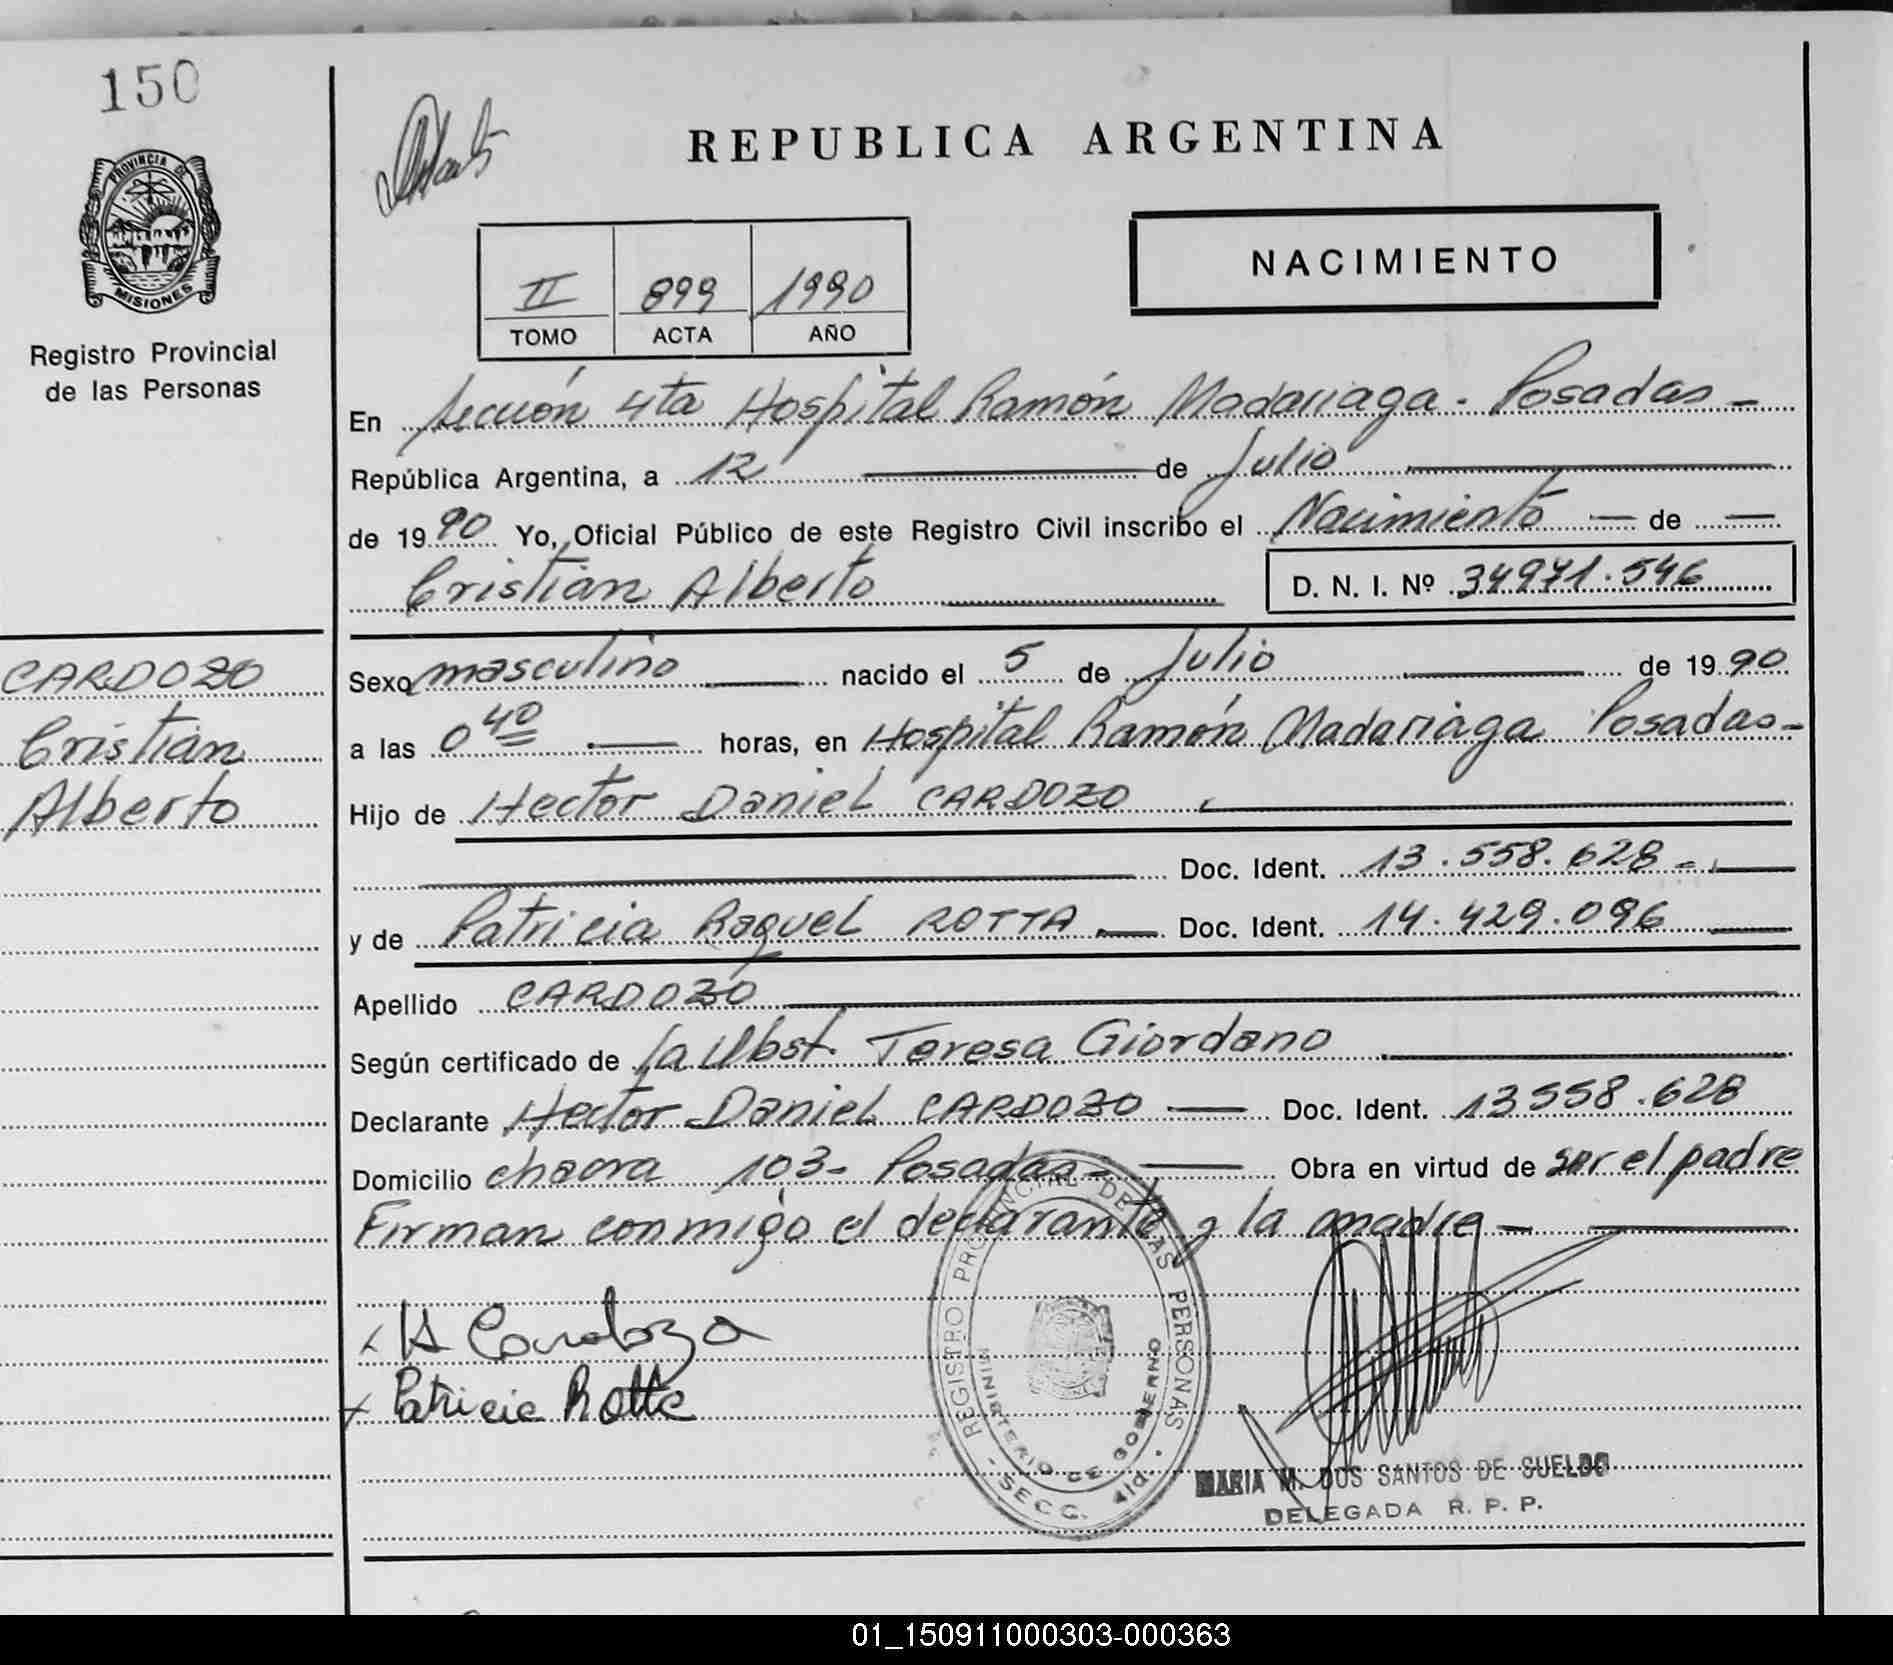 150
REPUBLICA ARGENTINA
PROVINCIA DE
MISIONES
Registro Provincial
de las Personas
II 899 1990
TOMO ACTA AÑO
NACIMIENTO
En Sección 4ta Hospital Ramón Madariaga - Posadas -
República Argentina, a 12 de Julio
de 1990 Yo, Oficial Público de este Registro Civil inscribo el Nacimiento — de —
Cristian Alberto D. N. I. Nº 34971.546
CARDOZO
Cristian
Alberto
Sexo masculino nacido el 5 de Julio de 1990
a las 0 40 horas, en Hospital Ramón Madariaga Posadas -
Hijo de Hector Daniel CARDOZO
Doc. Ident. 13.558.628 -
y de Patricia Raquel ROTTA Doc. Ident. 14.429.096
Apellido CARDOZO
Según certificado de la Obst. Teresa Giordano
Declarante Hector Daniel CARDOZO Doc. Ident. 13558.628
Domicilio chacra 103- Posadas - Obra en virtud de ser el padre
Firman conmigo el declarante y la madre -
x H Cardozo
x Patricia Rotta
REGISTRO PROVINCIAL DE LAS PERSONAS
MINISTERIO DE GOBIERNO
- SECC. 4ta. -
MARIA M. DOS SANTOS DE SUELDO
DELEGADA R. P. P.
01_150911000303-000363